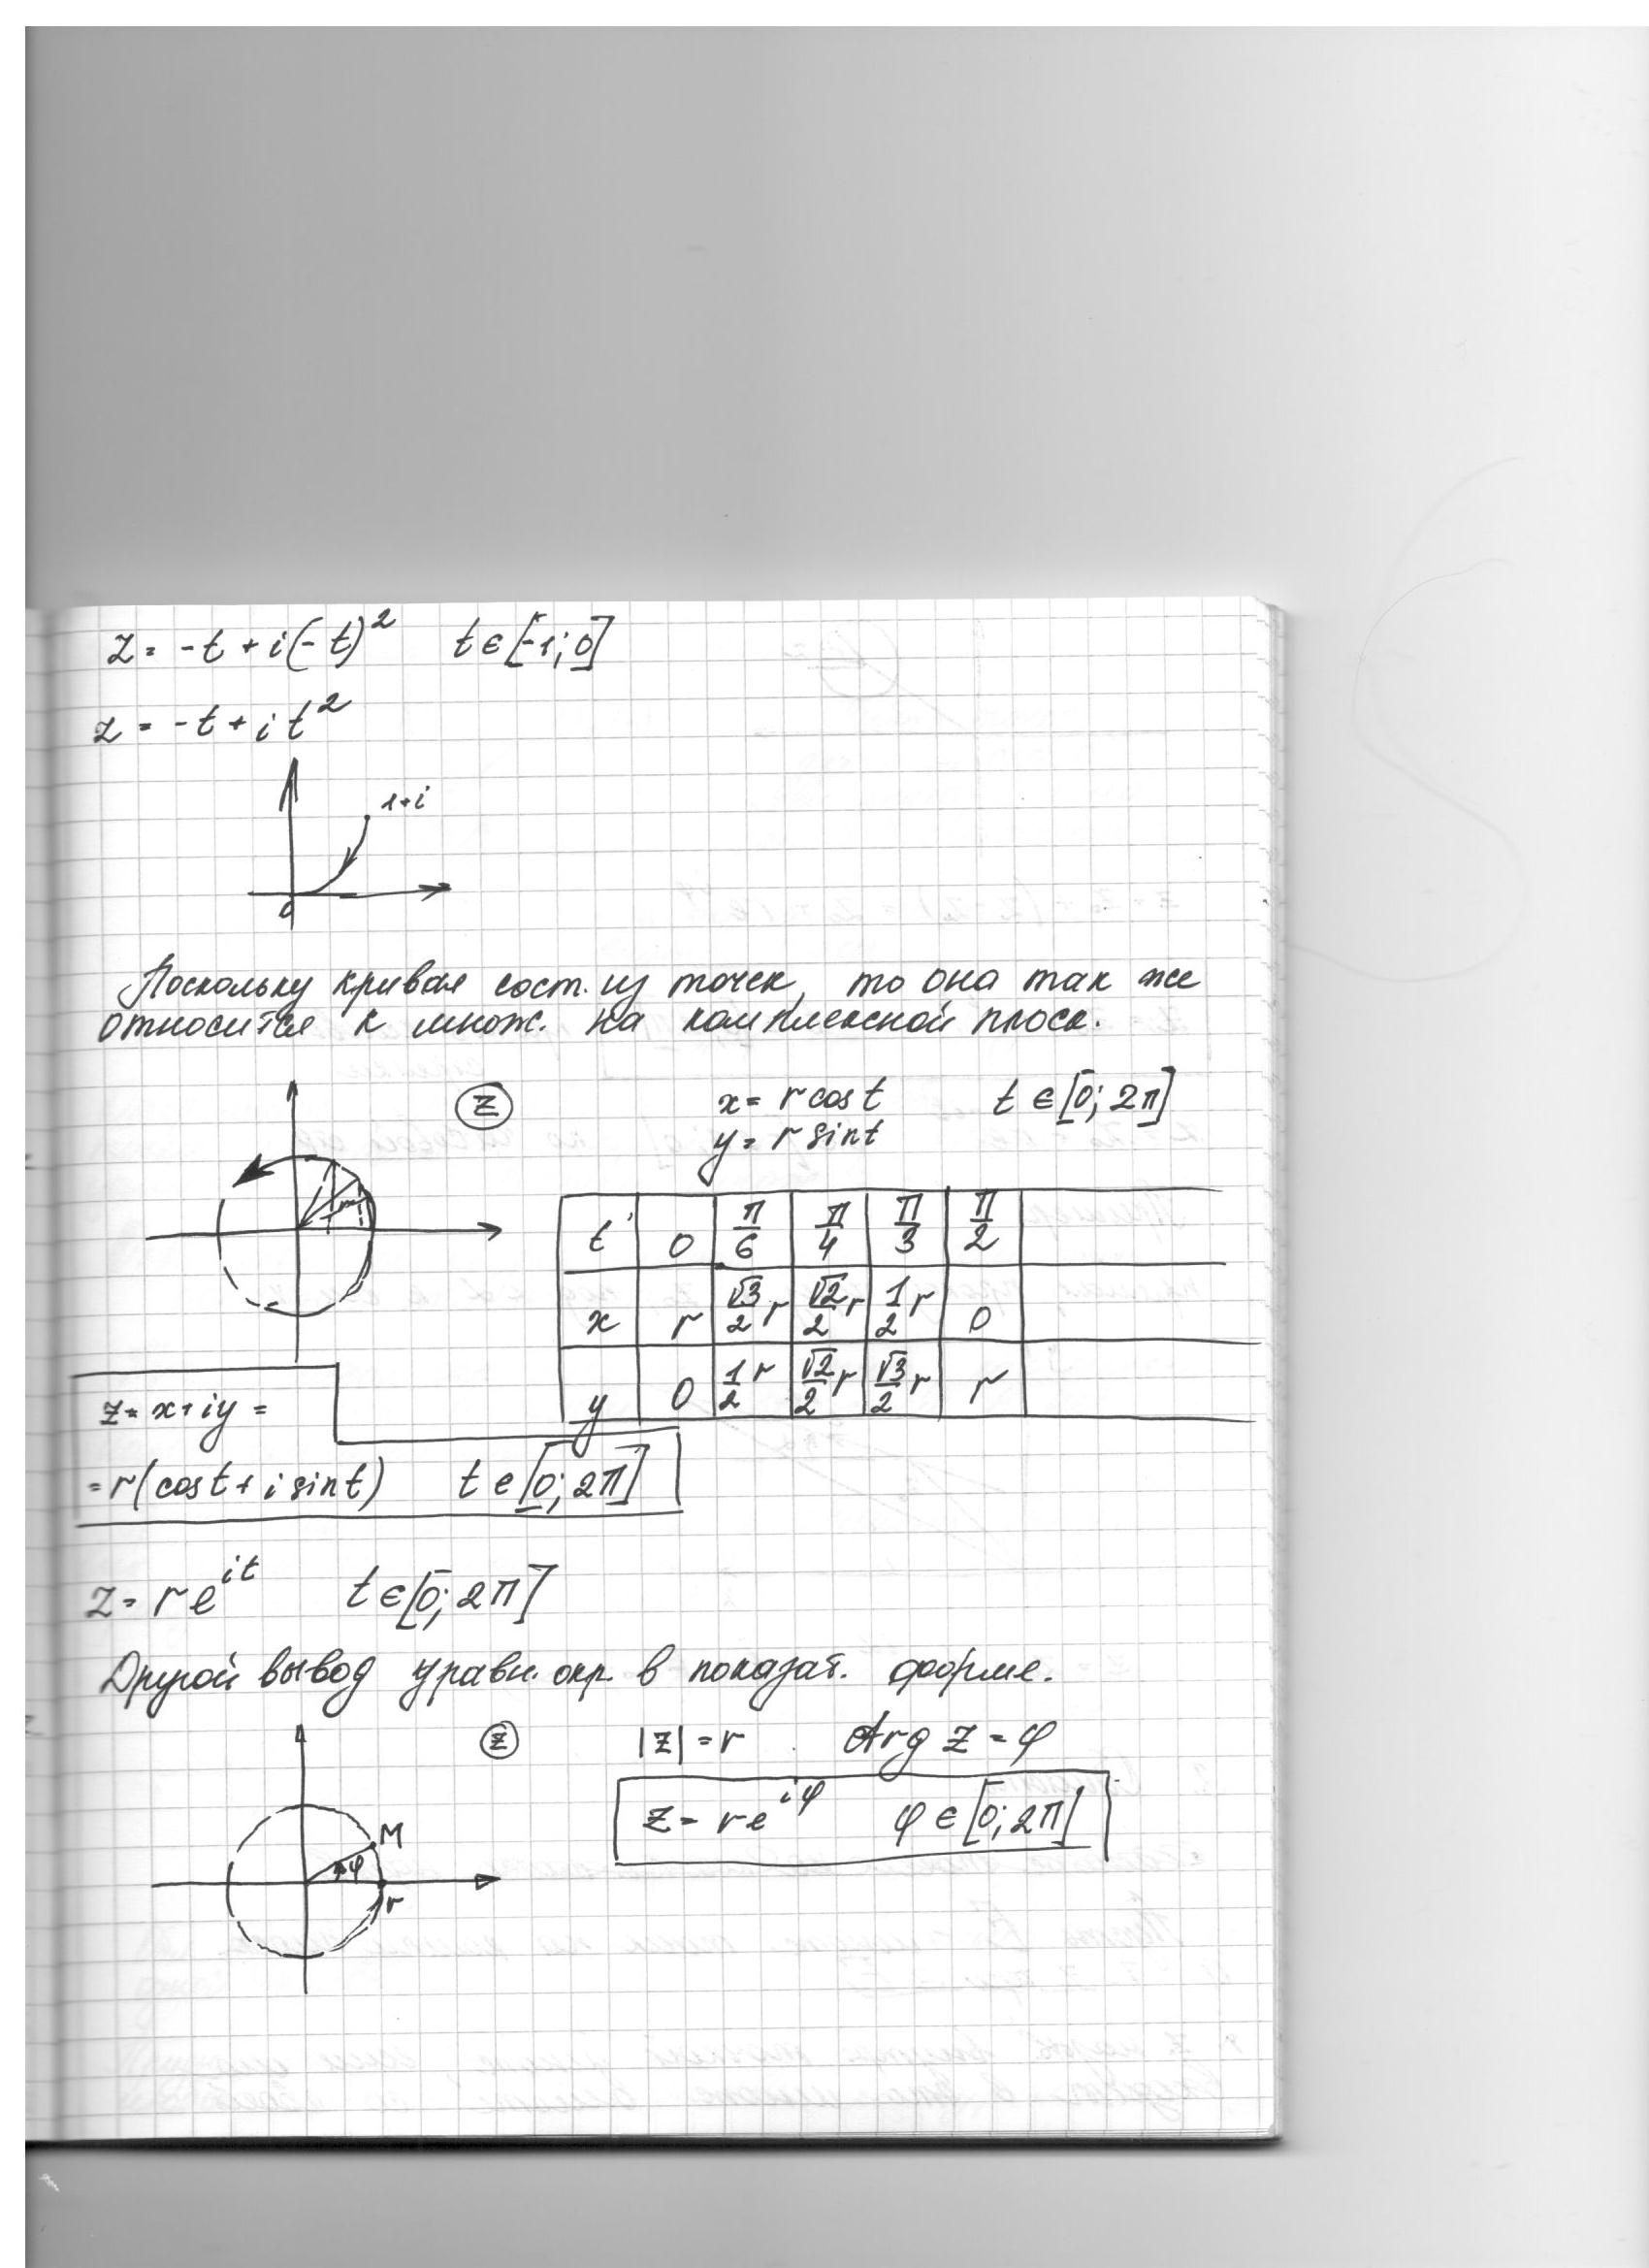 z = -t + i(-t)² t ∈ [-1; 0]
z = -t + i t²
1+i
0
Поскольку кривая сост. из точек, то она так же
относится к множ. на комплексной плоск.
z
x = r cos t t ∈ [0; 2π]
y = r sin t
t 0 π/6 π/4 π/3 π/2
x r √3/2 r √2/2 r 1/2 r 0
y 0 1/2 r √2/2 r √3/2 r r
z = x + iy =
= r(cos t + i sin t) t ∈ [0; 2π]
z = r e^{it} t ∈ [0; 2π]
Другой вывод уравн. окр. в показат. форме.
z
|z| = r Arg z = φ
z = r e^{iφ} φ ∈ [0; 2π]
M
φ
r